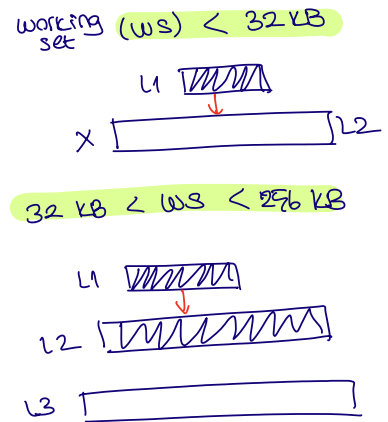 working (WS) < 32 KB
set
L1
X L2
32 KB < WS < 256 KB
L1
L2
L3